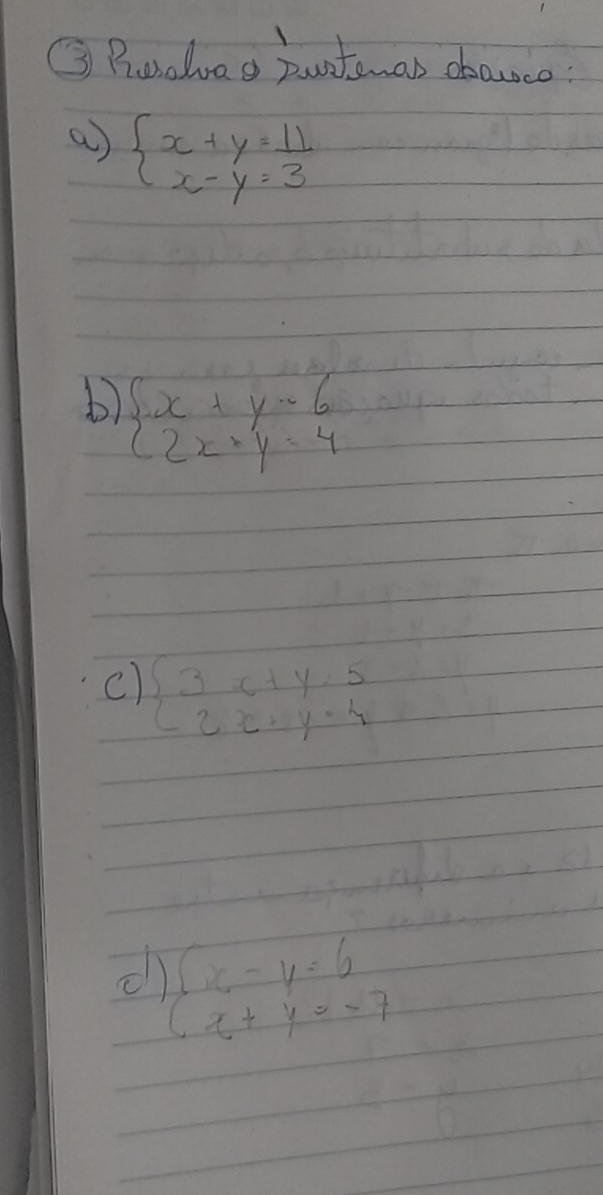 ③ Resolva o sistemas abaixo:
a) { x + y = 11
x - y = 3
b) { x + y = 6
2x + y = 4
c) { 3x + y = 5
2x + y = 4
d) { x - y = 6
x + y = -7